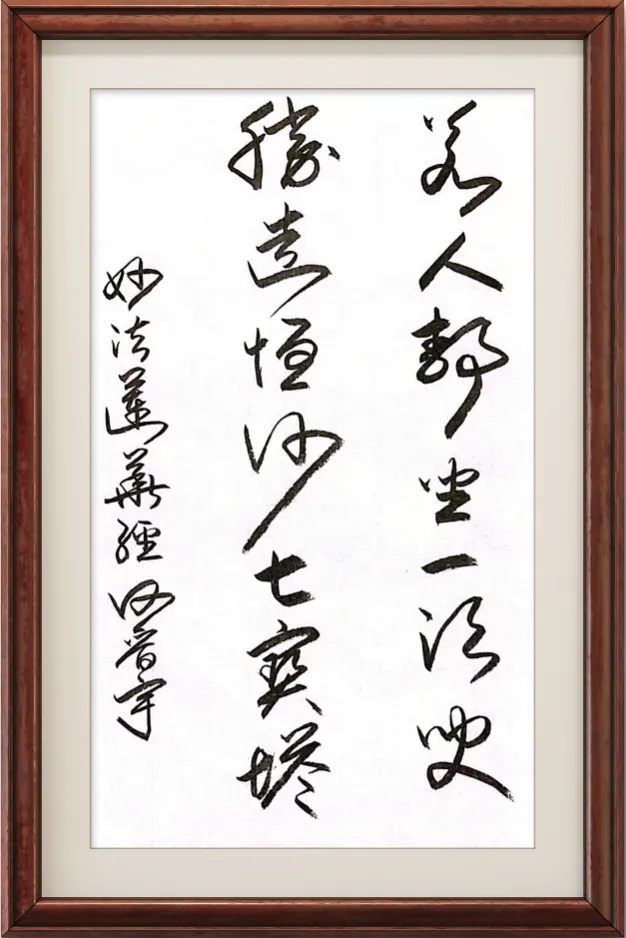 若人靜坐一須臾
勝造恒沙七寶塔
妙法蓮華經